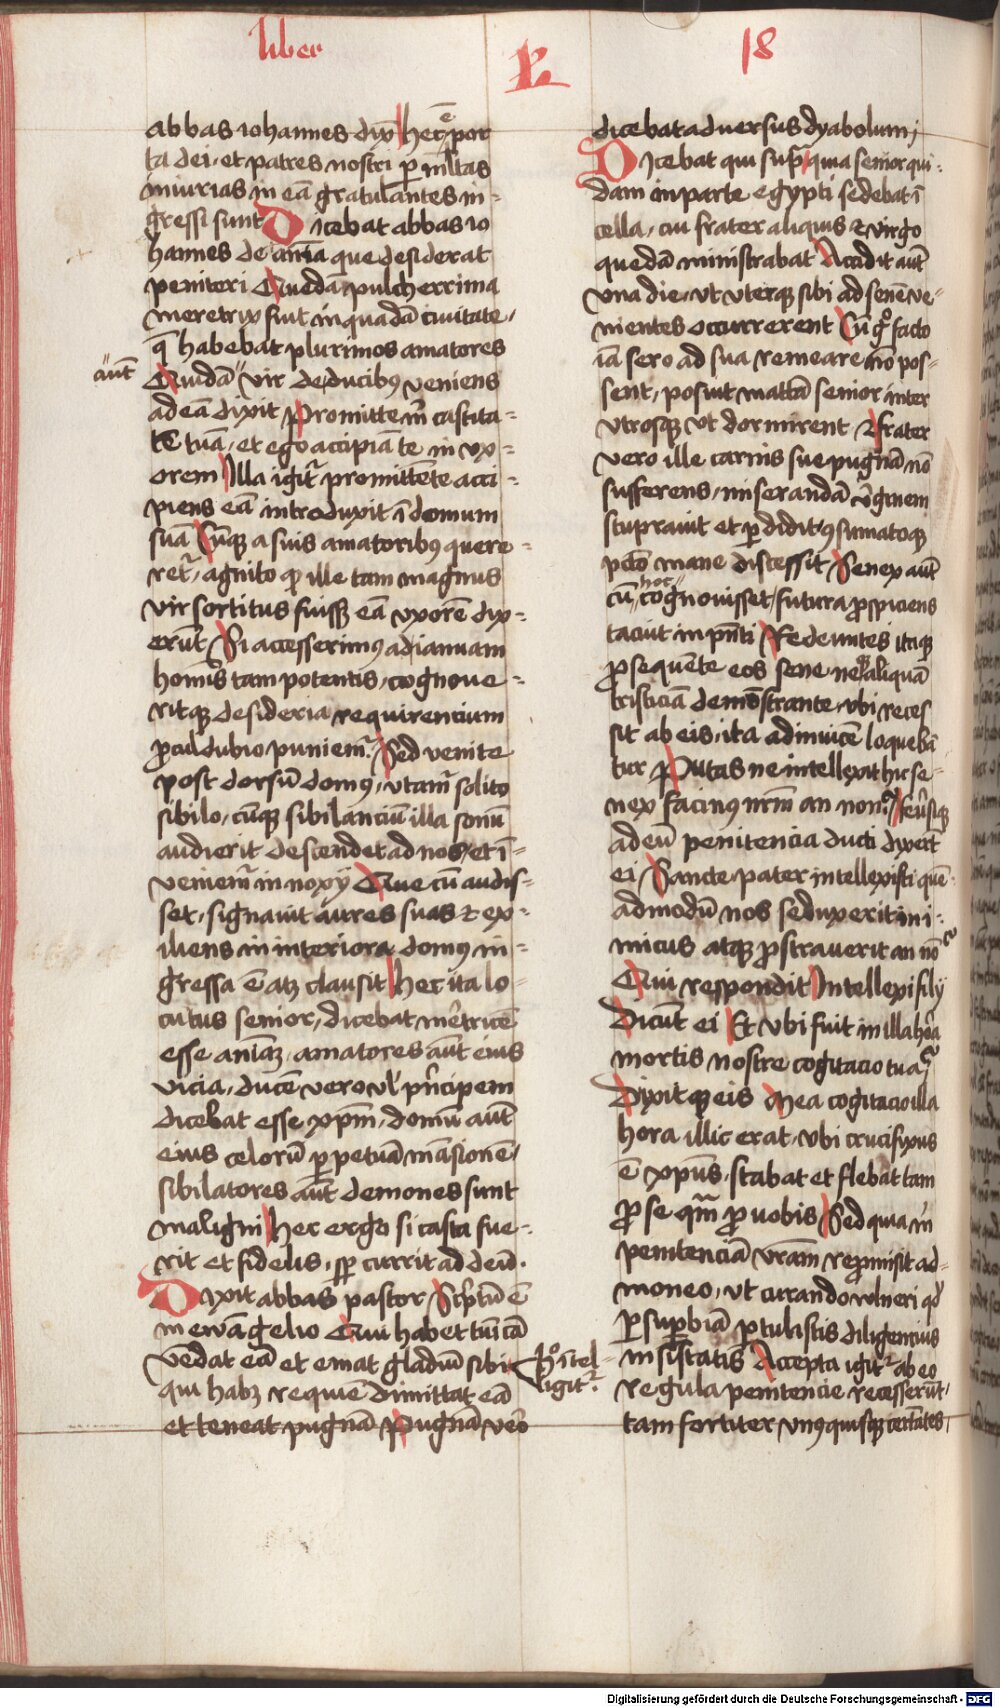 liber
18
abbas iohannes dix̄ hec ē por
ta dei · et patres nostri ꝑ ml̄tas
iniurias in eā gratulantes in-
gressi sunt Dicebat abbas io
hannes de aīa que desiderat
peniteri Quedā pulcherrima
meretrix fuit in quadā ciuitate ,
q̄ habebat plurimos amatores
aūt
Quidā vir de ducibꝰ veniens
ad eā dixit Promitte m̄ castita-
tē tuā , et ego accipiā te in vx-
orem Illa igit᷑ promittente acci-
piens eā introduxit ī domum
suā Cūqꝫ a suis amatoribꝰ quere-
ret᷑ , agnito ꝙ ille tam magnus
vir sortitus fuissꝫ eā vxorē dix-
erūt Si accesserimꝰ ad ianuam
homīs tam potentis , cognoue-
ritqꝫ desideria requirencium
ꝓcul dubio puniem᷑ . Sed venite
post dorsū domꝰ , vtam᷑ solito
sibilo , cūqꝫ sibilanciū illa sonū
audierit descendet ad nos , et ī-
veniem᷑ innoxij Que cū audis-
set , signauit aures suas ⁊ ex-
iliens in interiora domꝰ in-
gressa ē atqꝫ clausit Hec ita lo-
cutus senior , dicebat met᷑ricē
esse anīaꝫ , amatores aūt eius
vicia , ducē vero vl̄ pn̄cipem
dicebat esse xp̄m , domū aūt
eius celorū ꝑpetuā māsionē ,
sibilatores aūt demones sunt
maligni Hec ergo si casta fue-
rit et fidelis , sꝑ currit ad deū .
Dixit abbas pastor Scp̄tū ē
in ewāgelio Qui habet tunicā
vēdat eā et emat gladiū sibi
qui habꝫ requiē dimittat eā
et teneat pugnā Pugnā vero
hō ītel-
ligit᷑ .
dicebat aduersus dyabolum ;
Dicebat qui supͣ quia senior qui-
dam in parte egypti sedebat ī
cella , cui frater aliquis ⁊ virgo
quedā ministrabat Accidit aūt
vna die , vt vterqꝫ sibi ad senē ve-
nientes occurrerent Cū gͦ facto
iā sero ad sua remeare nō pos-
sent , posuit mattā senior inter
vtrosqꝫ vt dormirent ⁊ frater
vero ille carnis sue pugnā nō
sufferens , miserandā v̓ginem
stuprauit et ꝑdidit , ꝯsumatoqꝫ
pctō mane discessit Senex aūt
hoc
cū cognouisset , futura ꝓspiciens
tacuit in pn̄ti Redeuntes itaqꝫ
ꝓsequente eos sene nec aliquā
tristiciā demōstrante , vbi reces
sit ab eis , ita adinuicē loquebā
tur Putas ne intellexit hic se-
nex facinꝰ nr̄m an non Reūsiqꝫ
ad eū penitencia ducti dixerūt
ei Sancte pater intellexisti quē-
admodū nos seduxerit ini-
micus atqꝫ ꝓstrauerit an nō
Qui respondit Intellexi filij
Dicūt ei Et vbi fuit in illa hōra
mortis nostre cogitacio tua
Dixitqꝫ eis Mea cogitacio illa
hora illic erat , vbi crucifyxus
ē xp̄us , stabat et flebat tam
ꝓ se qͣm ꝓ vobis Sed quia m̄
penitenciā vr̄am repromisit ad-
moneo , vt curando vulneri qd̓
ꝑ supbiā ꝑtulistis diligencius
insistatis Accepta igit᷑ ab eo
regula penitencie recesserūt ,
tam fortiter vnꝰquisqꝫ certātes ,